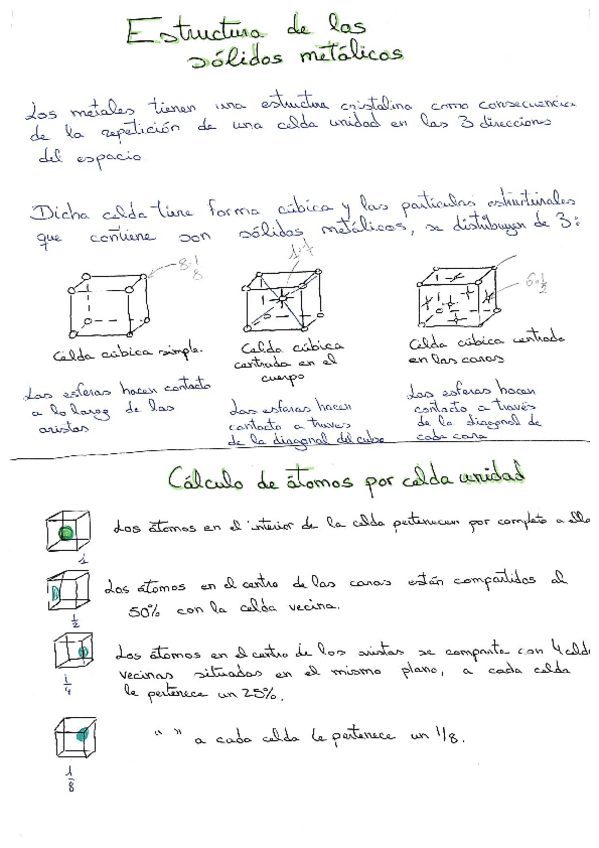 Estructura de los
sólidos metálicos
Los metales tienen una estructura cristalina como consecuencia
de la repetición de una celda unidad en las 3 direcciones
del espacio
Dicha celda tiene forma cúbica y las partículas estructurales
que contiene son sólidos metálicos, se distribuyen de 3:
8·1/8
1·1
6·1/2
Celda cúbica simple.
Celda cúbica
centrada en el
cuerpo
Celda cúbica centrada
en las caras
Las esferas hacen contacto
a lo largo de las
aristas
Las esferas hacen
contacto a traves
de la diagonal del cubo
Las esferas hacen
contacto a través
de la diagonal de
cada cara
Cálculo de átomos por celda unidad
Los átomos en el interior de la celda pertenecen por completo a ella
1
Los átomos en el centro de las caras están compartidos al
50% con la celda vecina.
1/2
Los átomos en el centro de los aristas se comparte con 4 celda
vecinas situadas en el mismo plano, a cada celda
le pertenece un 25%.
1/4
" " a cada celda le pertenece un 1/8.
1/8